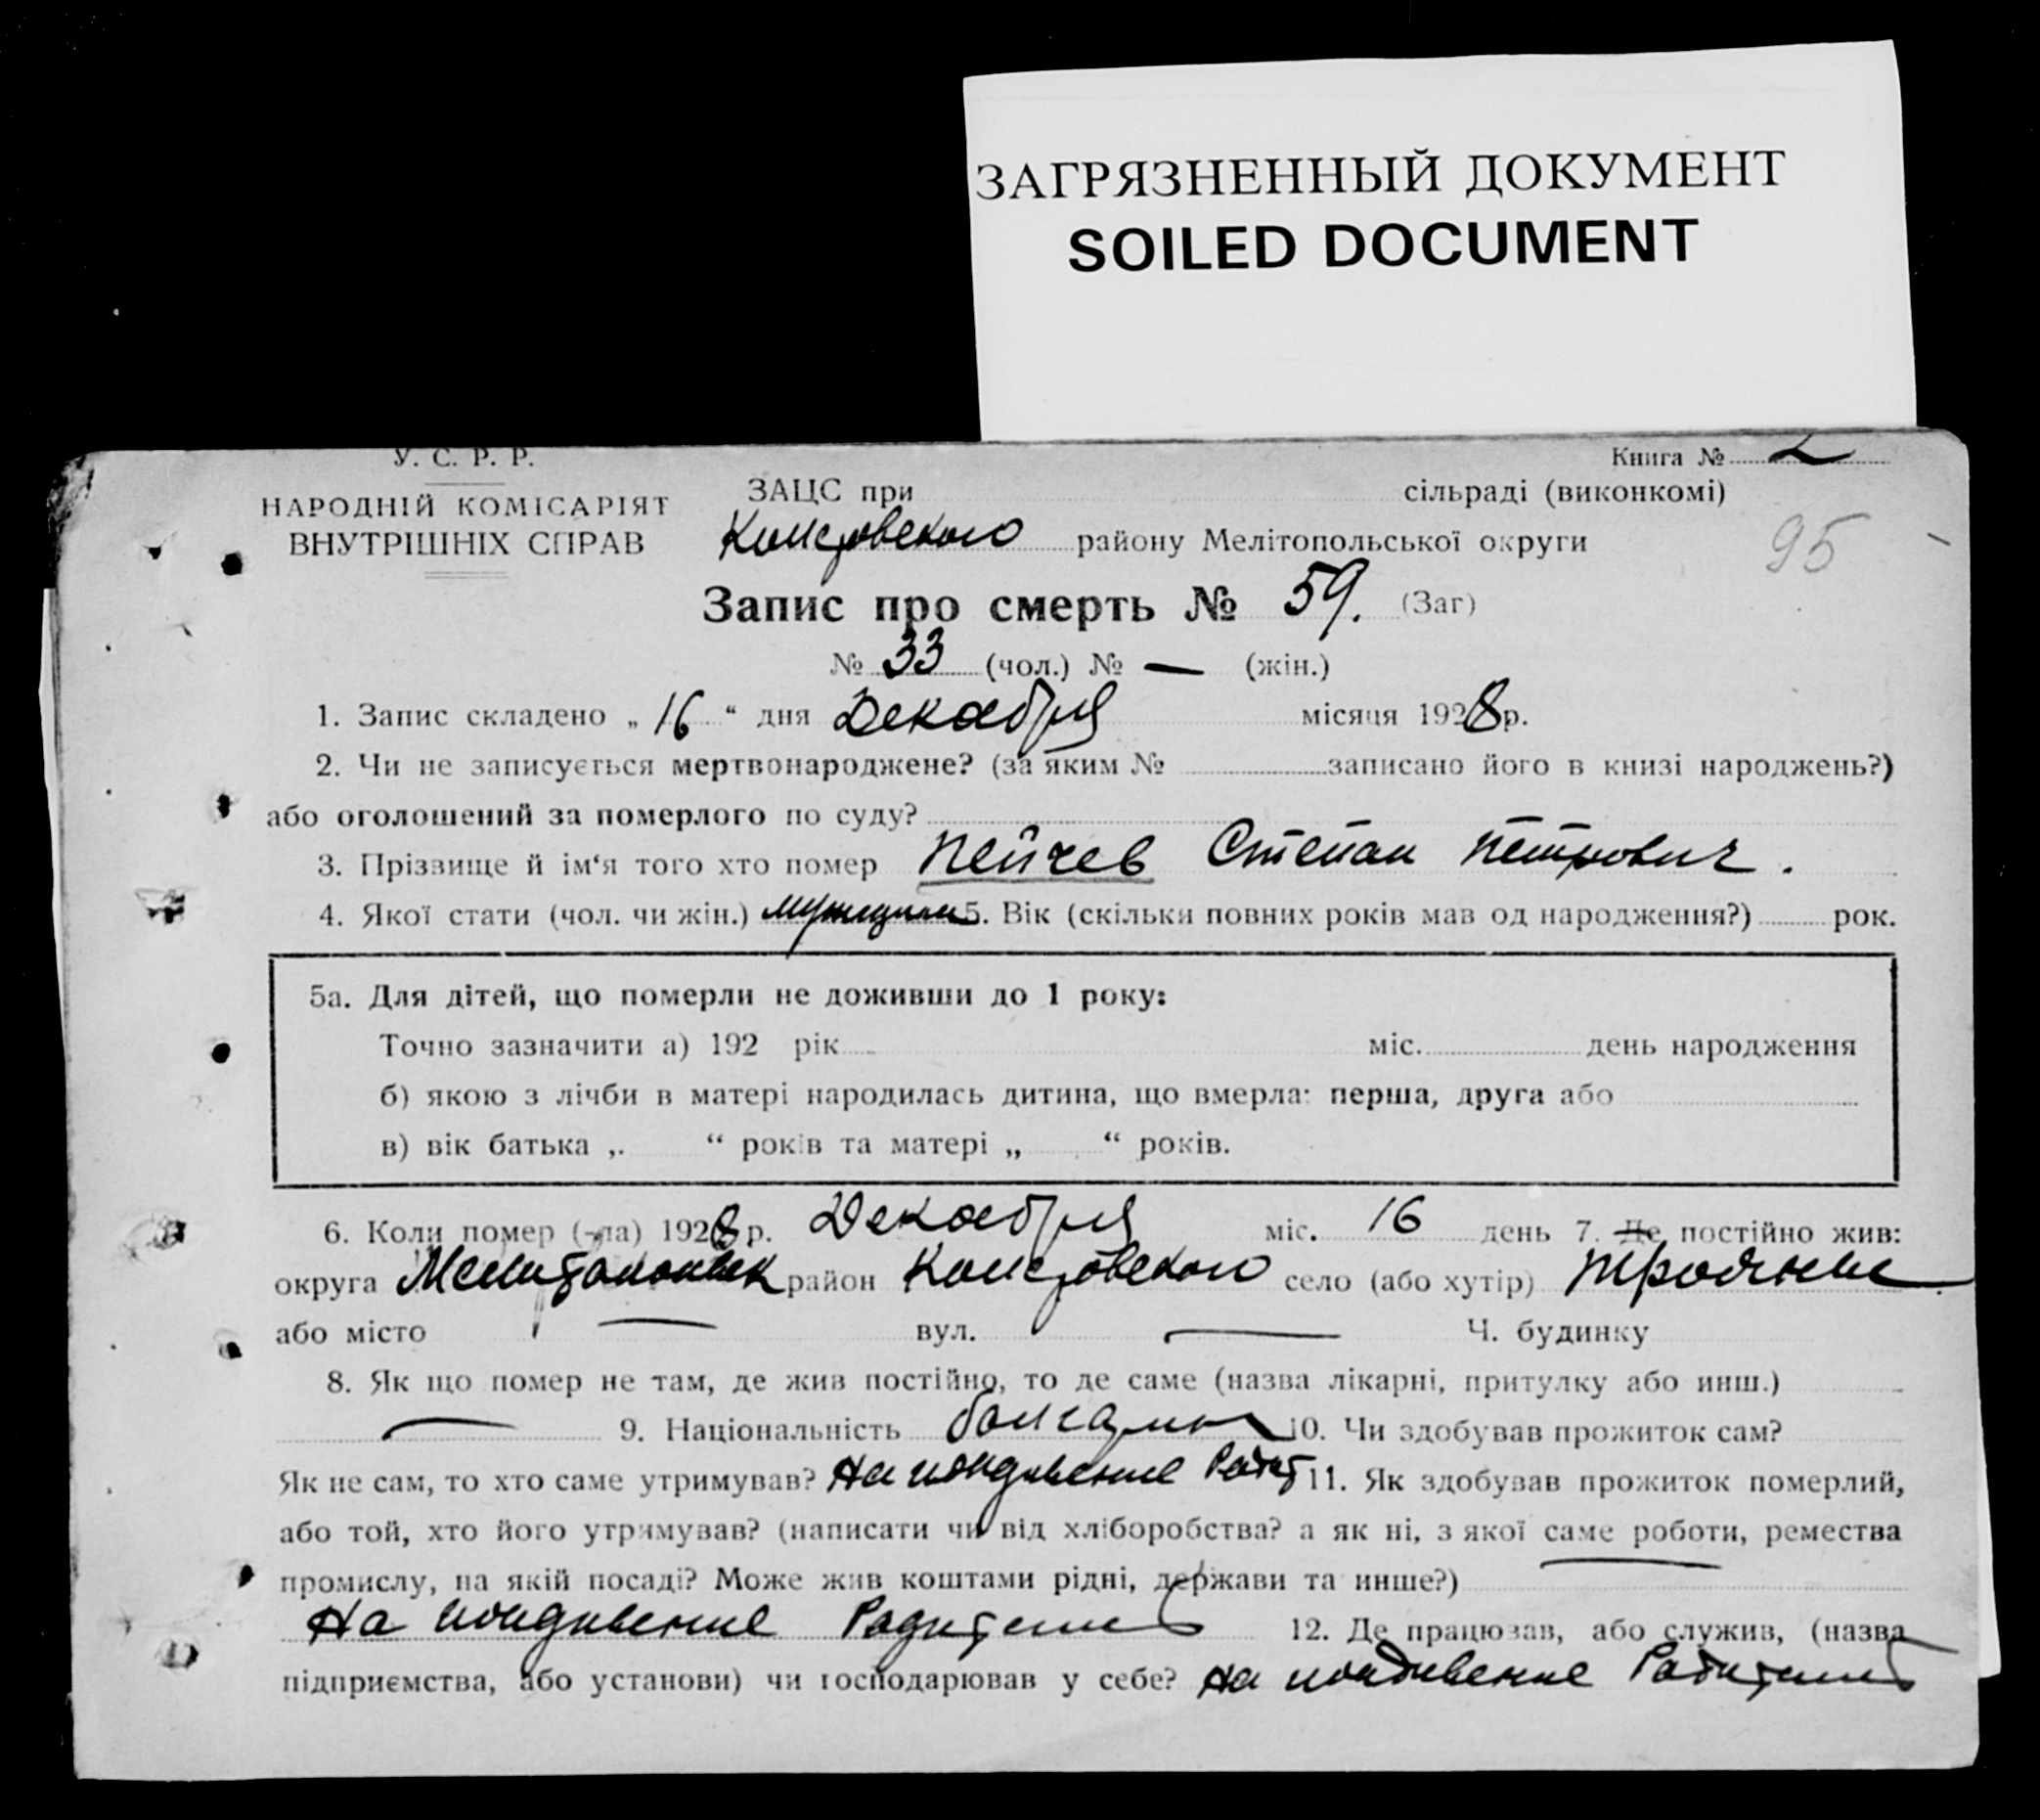 ЗАГРЯЗНЕННЫЙ ДОКУМЕНТ
SOILED DOCUMENT
У. С. Р. Р.
Книга № 2
НАРОДНІЙ КОМІСАРІЯТ
ВНУТРІШНІХ СПРАВ
ЗАЦС при сільраді (виконкомі)
району Мелітопольської округи
95
Запис про смерть № 59. (Заг)
№ 33 (чол.) № — (жін.)
1. Запис складено „ 16 “ дня Декабря місяця 1928 р.
2. Чи не записується мертвонароджене? (за яким № записано його в книзі народжень?)
або оголошений за померлого по суду?
3. Прізвище й ім‘я того хто помер Пейчев Степан Петрович.
4. Якої стати (чол. чи жін.) мужщина 5. Вік (скільки повних років мав од народження?) рок.
5а. Для дітей, що померли не доживши до 1 року:
Точно зазначити а) 192 рік міс. день народження
б) якою з лічби в матері народилась дитина, що вмерла: перша, друга або
в) вік батька „ “ років та матері „ “ років.
6. Коли помер (-ла) 1928 р. Декабря міс. 16 день 7. Де постійно жив:
округа район село (або хутір) Трояны
або місто — вул. — Ч. будинку
8. Як що помер не там, де жив постійно, то де саме (назва лікарні, притулку або инш.)
— 9. Національність болгарин 10. Чи здобував прожиток сам?
Як не сам, то хто саме утримував? На иждивение Родит 11. Як здобував прожиток померлий,
або той, хто його утримував? (написати чи від хліборобства? а як ні, з якої саме роботи, ремества
промислу, на якій посаді? Може жив коштами рідні, держави та инше?) —
На иждивение Родителей 12. Де працював, або служив, (назва
підприємства, або установи) чи господарював у себе? На иждивение Родителей